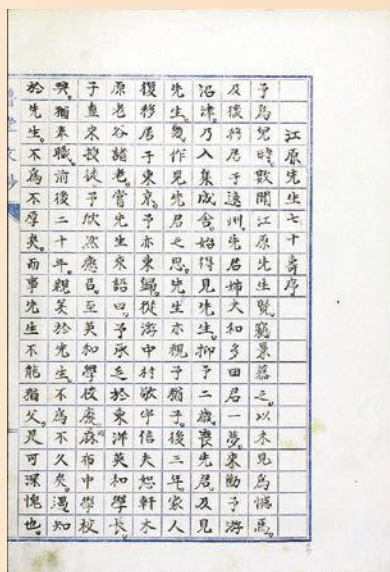 江原先生七十壽序
予爲兒時數聞江原先生賢竊景慕之以未見爲憾焉
及後移居于遠州先居姊夫和多田君一夢來勸予游
沼津乃入集成舍始得見先生抑予二歲喪先君及見
先生幾作見先君之思先生亦視予猶子後三年家人
復移居于東京予亦東歸從游中村敬宇信夫恕軒木
原老谷諸老嘗先生來語曰予承乏於東洋英和學長
子盍來授徒予欣然應召至英和學校廢麻布中學校
興猶奉職前後二十年親炙於先生不爲不久矣遇知
於先生不爲不厚矣而事先生不能猶父是可深愧也